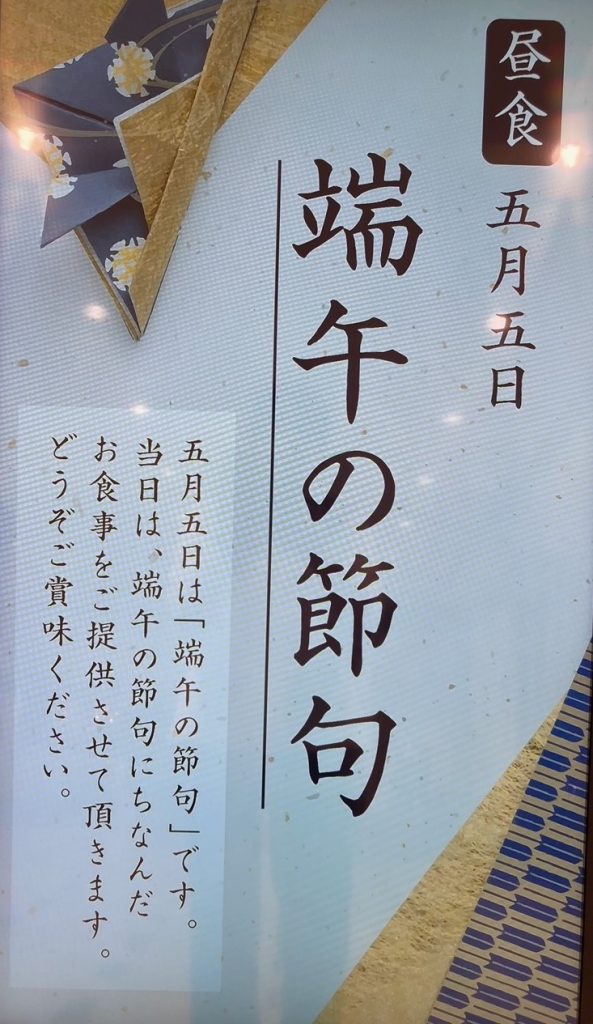 昼食
五月五日
端午の節句
五月五日は「端午の節句」です。
当日は、端午の節句にちなんだ
お食事をご提供させて頂きます。
どうぞご賞味ください。